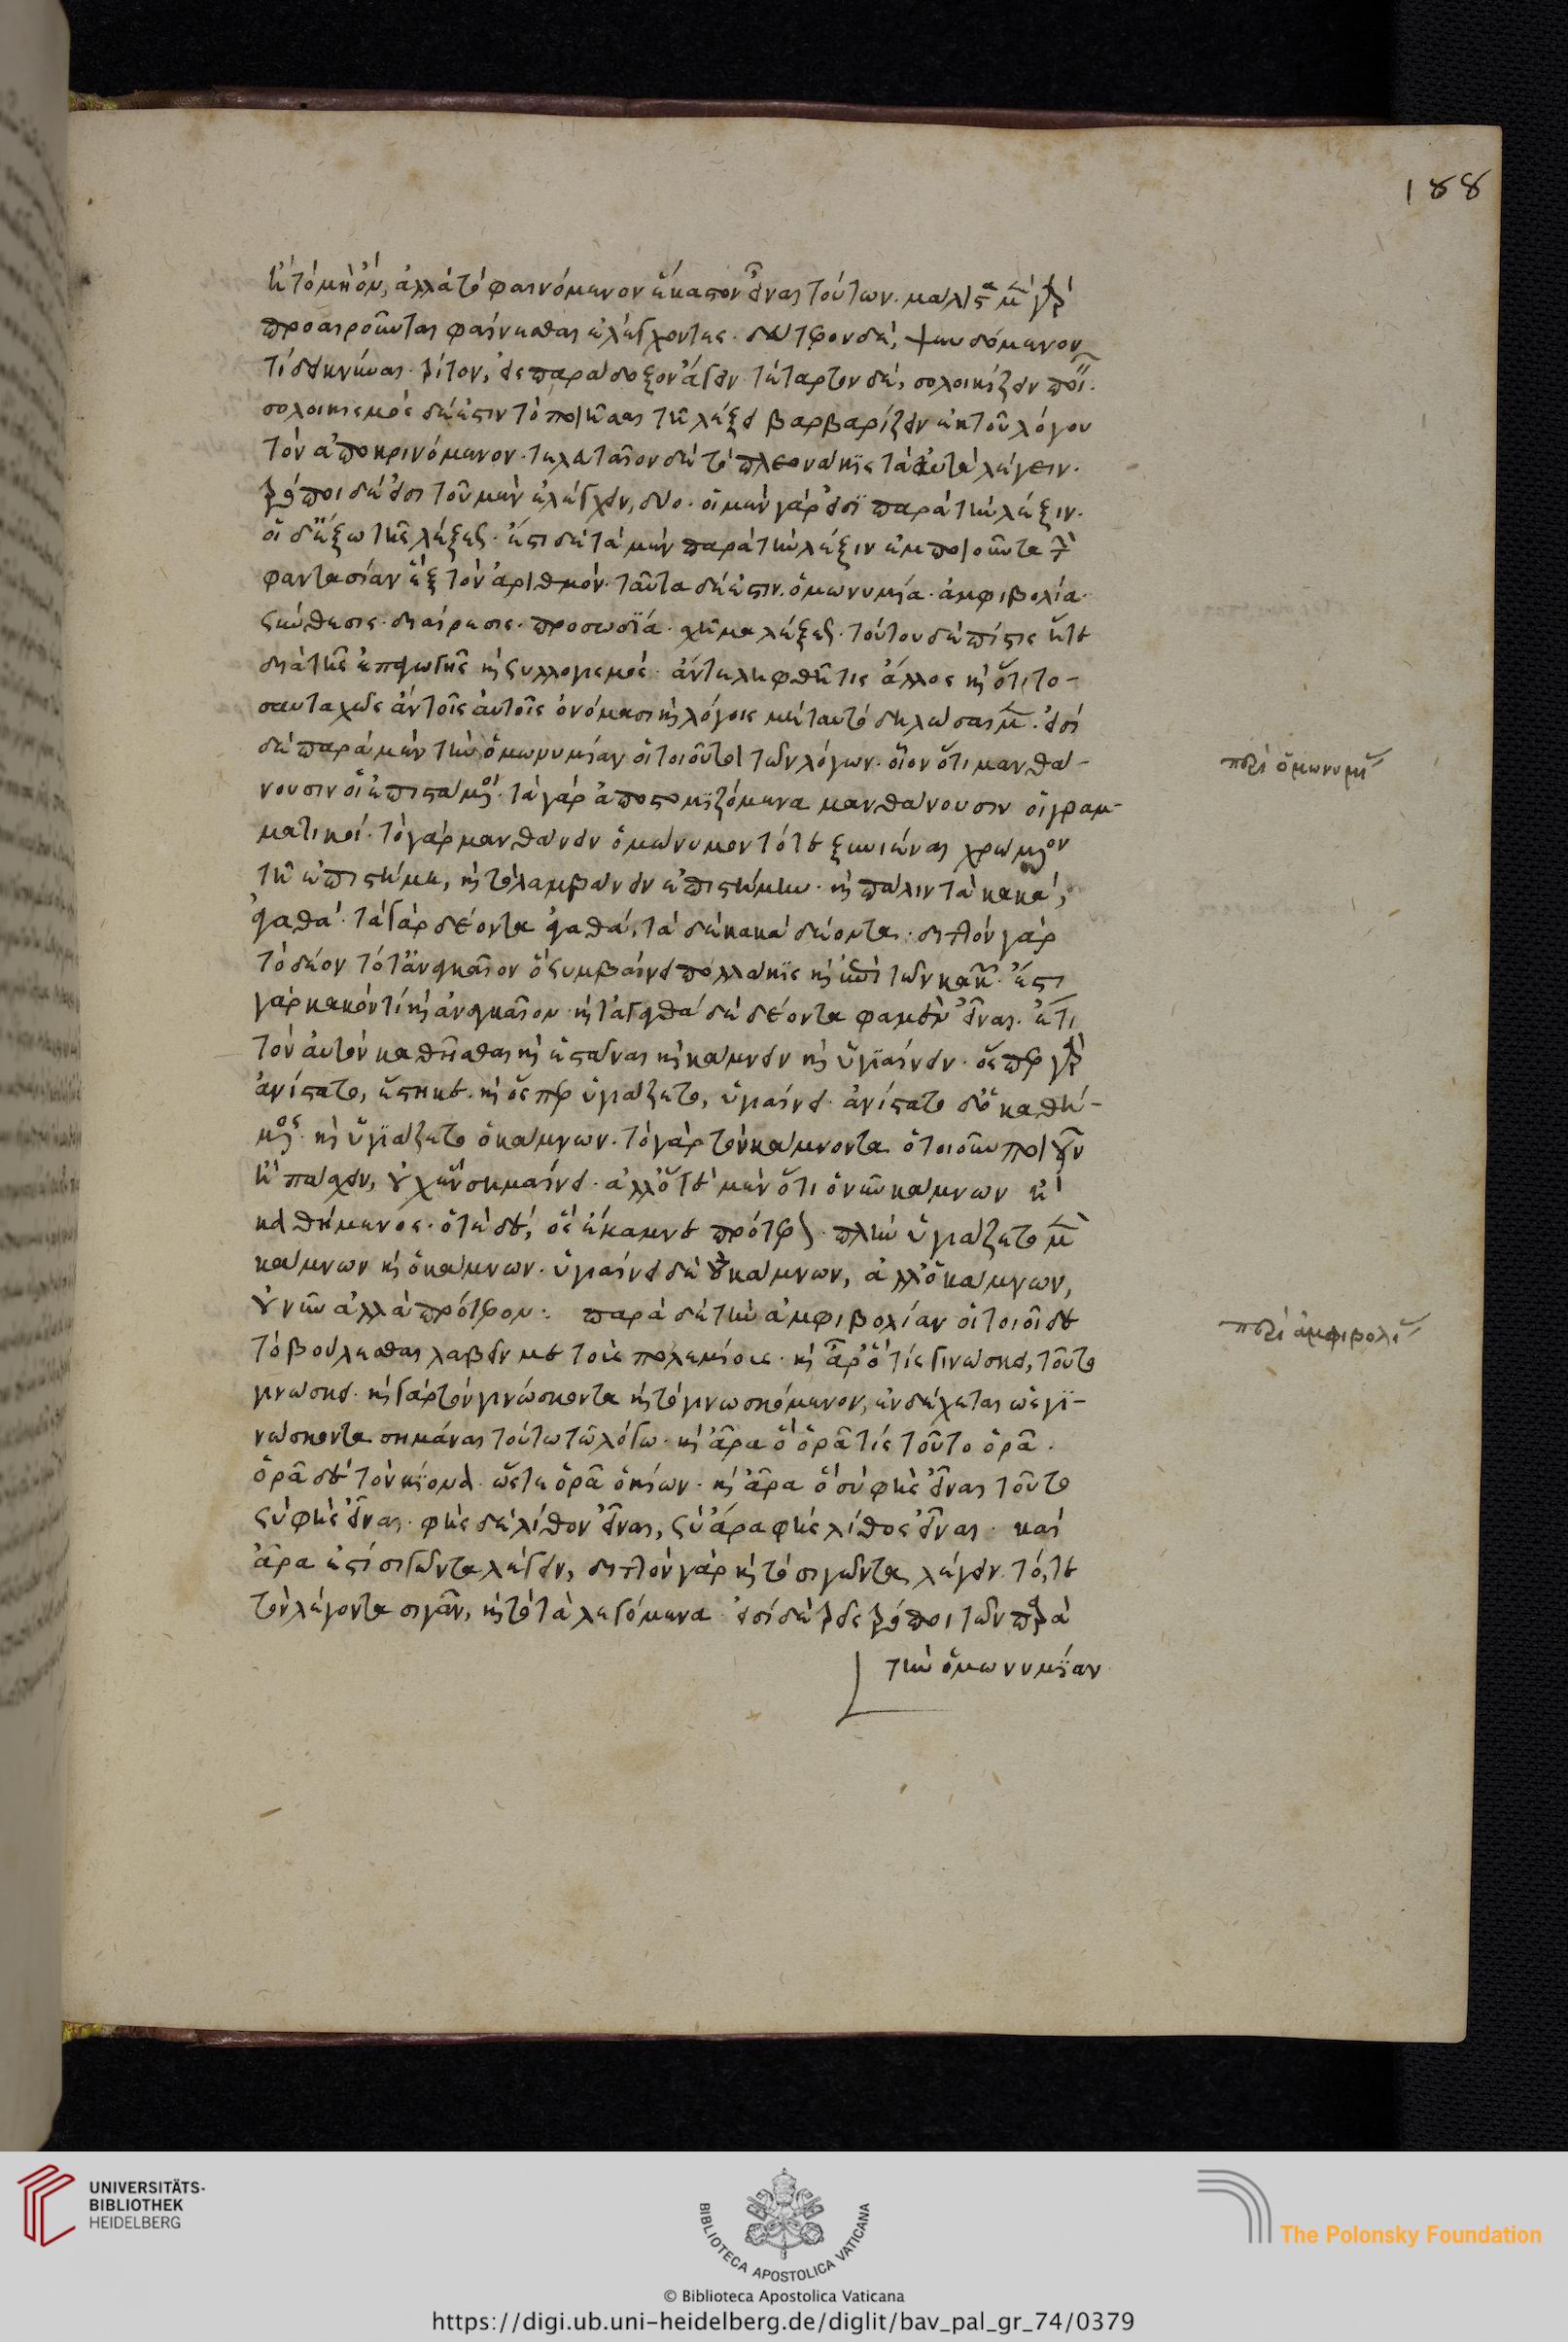 ἢ τὸ μὴ ὄν, ἀλλὰ τὸ φαινόμενον ἕκαστον εἶναι τούτων. μάλιστα μὲν γὰρ
προαιροῦνται φαίνεσθαι ἐλέγχοντες. δεύτερον δὲ, ψευδόμενον
τί δεικνύναι. τρίτον, εἰς παράδοξον ἄγειν. τέταρτον δὲ, σολοικίζειν ποι.
σολοικισμὸς δέ ἐστιν τὸ ποιῆσαι τῇ λέξει βαρβαρίζειν ἐκ τοῦ λόγου
τὸν ἀποκρινόμενον. τελευταῖον δὲ τὸ πλεονάκις τὰ αὐτὰ λέγειν.
τρόποι δέ εἰσι τοῦ μὲν ἐλέγχειν, δύο. οἱ μὲν γάρ εἰσι παρὰ τὴν λέξιν.
οἱ δ' ἔξω τῆς λέξεως. ἔστι δὲ τὰ μὲν παρὰ τὴν λέξιν ἐμποιοῦντα τὴν
φαντασίαν ἓξ τὸν ἀριθμόν. ταῦτα δέ ἐστιν. ὁμωνυμία. ἀμφιβολία.
σύνθεσις. διαίρεσις. προσωδία. σχῆμα λέξεως. τούτου δὲ πίστις ἥτε
διὰ τῆς ἐπαγωγῆς καὶ συλλογισμός. ἄντε ληφθῇ τις ἄλλος καὶ ὅτι το-
σαυταχῶς ἂν τοῖς αὐτοῖς ὀνόμασι καὶ λόγοις μὴ ταυτὸ δηλώσαιμεν. εἰσὶ
δὲ παρὰ μὲν τὴν ὁμωνυμίαν οἱ τοιοῦτοι τῶν λόγων. οἷον ὅτι μανθά-
νουσιν οἱ ἐπιστάμενοι. τὰ γὰρ ἀποστομιζόμενα μανθάνουσιν οἱ γραμ-
ματικοί. τὸ γὰρ μανθάνειν ὁμώνυμον τό τε ξυνιέναι χρώμενον
τῇ ἐπιστήμη, καὶ τὸ λαμβάνειν ἐπιστήμην. καὶ πάλιν τὰ κακὰ,
ἀγαθά. τὰ γὰρ δέοντα ἀγαθά, τὰ δὲ κακὰ δέοντα. διττὸν γὰρ
τὸ δέον τό τ' ἀναγκαῖον ὃ συμβαίνει πολλάκις καὶ ἐπὶ τῶν κακῶν. ἔστι
γὰρ κακόν τί καὶ ἀναγκαῖον. καὶ τἀγαθὰ δὲ δέοντα φαμὲν εἶναι. ἔτι
τὸν αὐτὸν καθῆσθαι καὶ ἑστάναι καὶ κάμνειν καὶ ὑγιαίνειν. ὅσπερ γὰρ
ἀνίστατο, ἕστηκε. καὶ ὅσπερ ὑγιάζετο, ὑγιαίνει. ἀνίστατο δ' ὁ καθή-
μενος. καὶ ὑγιάζετο ὁ κάμνων. τὸ γὰρ τὸν κάμνοντα ὁτιοῦν ποιεῖν
ἢ πάσχειν, οὐχ ἓν σημαίνει. ἀλλ' ὁτὲ μὲν ὅτι ὁ νῦν κάμνων ἢ
καθήμενος. ὁτὲ δέ, ὃς ἔκαμνε πρότερον. πλὴν ὑγιάζετο μὲν
κάμνων καὶ ὁ κάμνων. ὑγιαίνει δὲ οὐ κάμνων, ἀλλ' ὁ κάμνων,
οὐ νῦν ἀλλὰ πρότερον: παρὰ δὲ τὴν ἀμφιβολίαν οἱ τοιοίδε
τὸ βούλεσθαι λαβεῖν με τοὺς πολεμίους. καὶ ἆρ' ὅ τίς γινώσκει, τοῦτο
γινώσκει. καὶ γὰρ τὸν γινώσκοντα καὶ τὸ γινωσκόμενον, ἐνδέχεται ὡς γι-
νώσκοντα σημάναι τούτω τῶ λόγω. καὶ ἆρα ὃ ὁρᾶ τίς τοῦτο ὁρᾶ.
ὁρᾶ δὲ τὸν κίονα. ὥστε ὁρᾶ ὁ κίων. καὶ ἆρα ὃ σὺ φὴς εἶναι τοῦτο
σὺ φὴς εἶναι. φὴς δὲ λίθον εἶναι, σὺ ἄρα φὴς λίθος εἶναι. καὶ
ἆρα ἐστὶ σιγῶντα λέγειν, διττὸν γὰρ καὶ τὸ σιγῶντα λέγειν. τό, τε
τὸν λέγοντα σιγᾶν, καὶ τὸ τὰ λεγόμενα. εἰσὶ δὲ τρεῖς τρόποι τῶν παρὰ
τὴν ὁμωνυμίαν
περὶ ὁμωνυμί
περὶ ἀμφιβολί
188
UNIVERSITÄTS-
BIBLIOTHEK
HEIDELBERG
BIBLIOTECA APOSTOLICA VATICANA
The Polonsky Foundation
© Biblioteca Apostolica Vaticana
https://digi.ub.uni-heidelberg.de/diglit/bav_pal_gr_74/0379